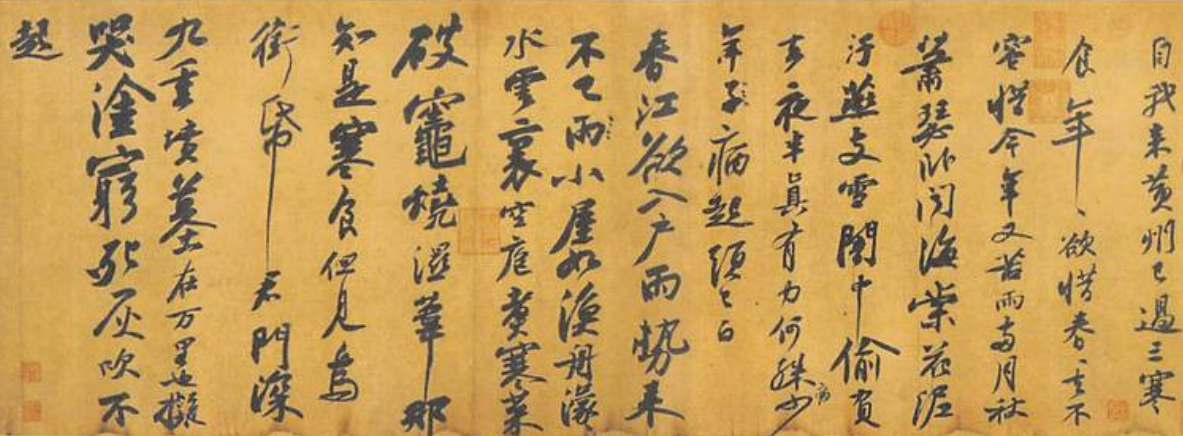 自我来黄州已過三寒
食年、欲惜春、去不
容惜今年又苦雨兩月秋
蕭瑟卧聞海棠花泥
污燕支雪闇中偷負
去夜半真有力何殊少病
年子病起頭已白
春江欲入户雨勢来
不已雨小屋如漁舟濛
水雲裏空庖煮寒菜
破竈燒濕葦那
知是寒食但見烏
銜帋君門深
九重墳墓在万里也擬
哭塗窮死灰吹不
起